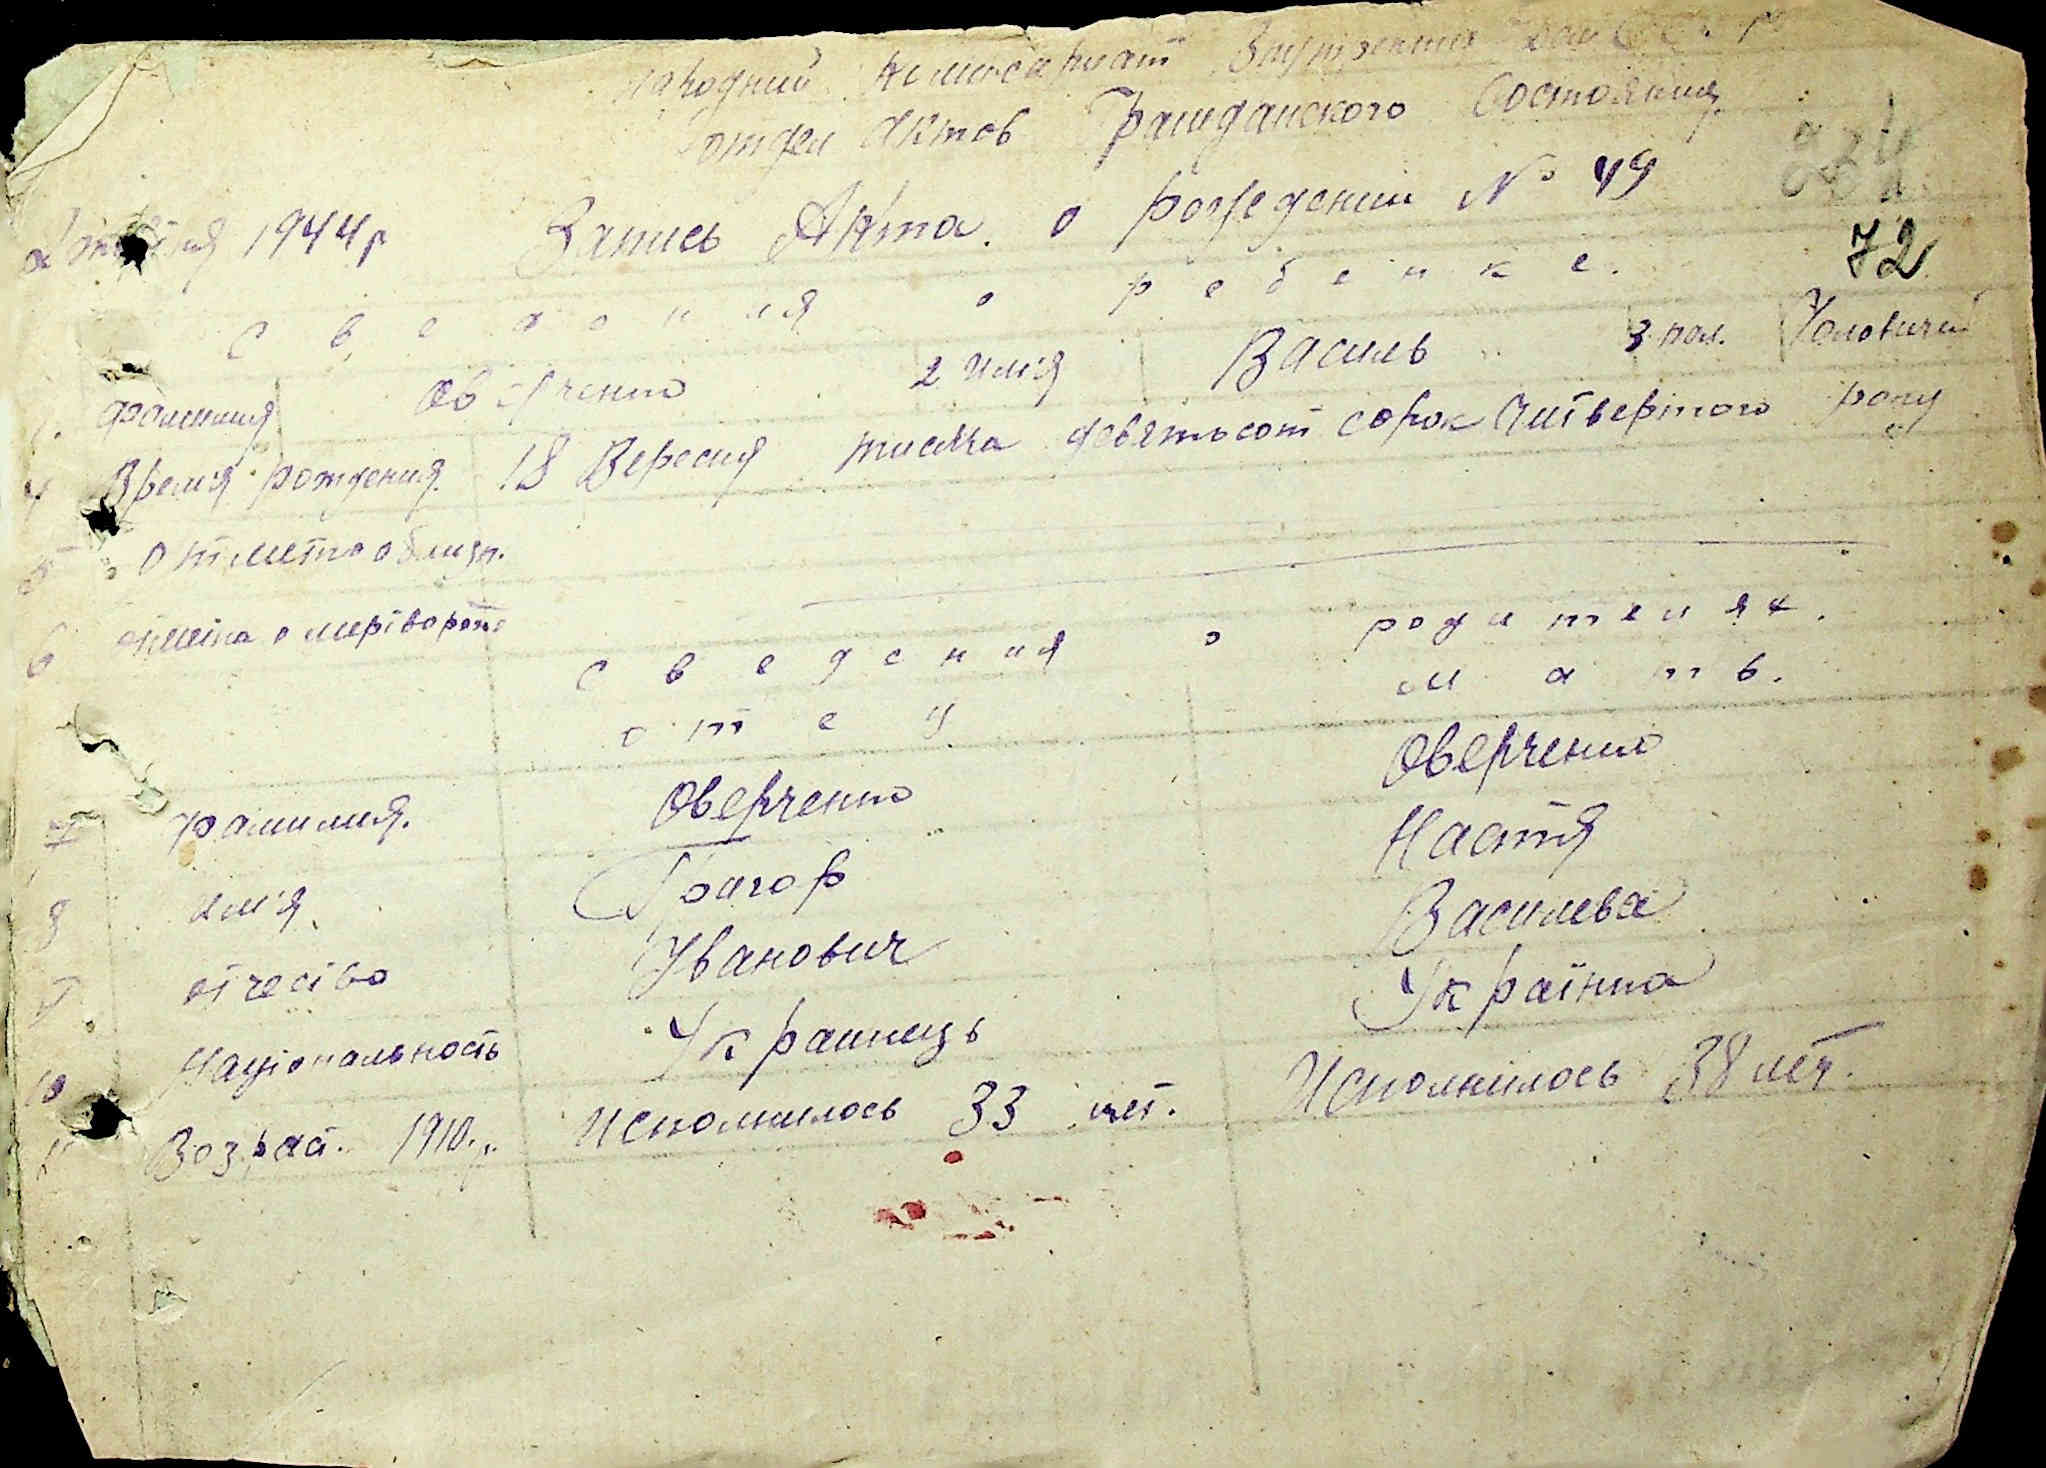 Народний комисариат Внутрених дел СССР
отдел Актов Гражданского Состояния
1944 р Запись Акта о рождении № 49
72
Сведения о ребенке.
1. фамилия Оверченко 2 имя Василь 3 пол. Чоловичий
4 Время рождения 18 Вересня тисяча девятьсот сорок читвертого року
5 отмето о близн.
6 отмета о мертворож
Сведения о родителях.
отец мать.
7 фамилия. Оверченко Оверченко
8 имя Григор Настя
9 отчество Иванович Василева
10 Національность Украинець Українка
11 Возраст. 1910 р. Исполнилось 33 лет. Исполнилось 38 лет.